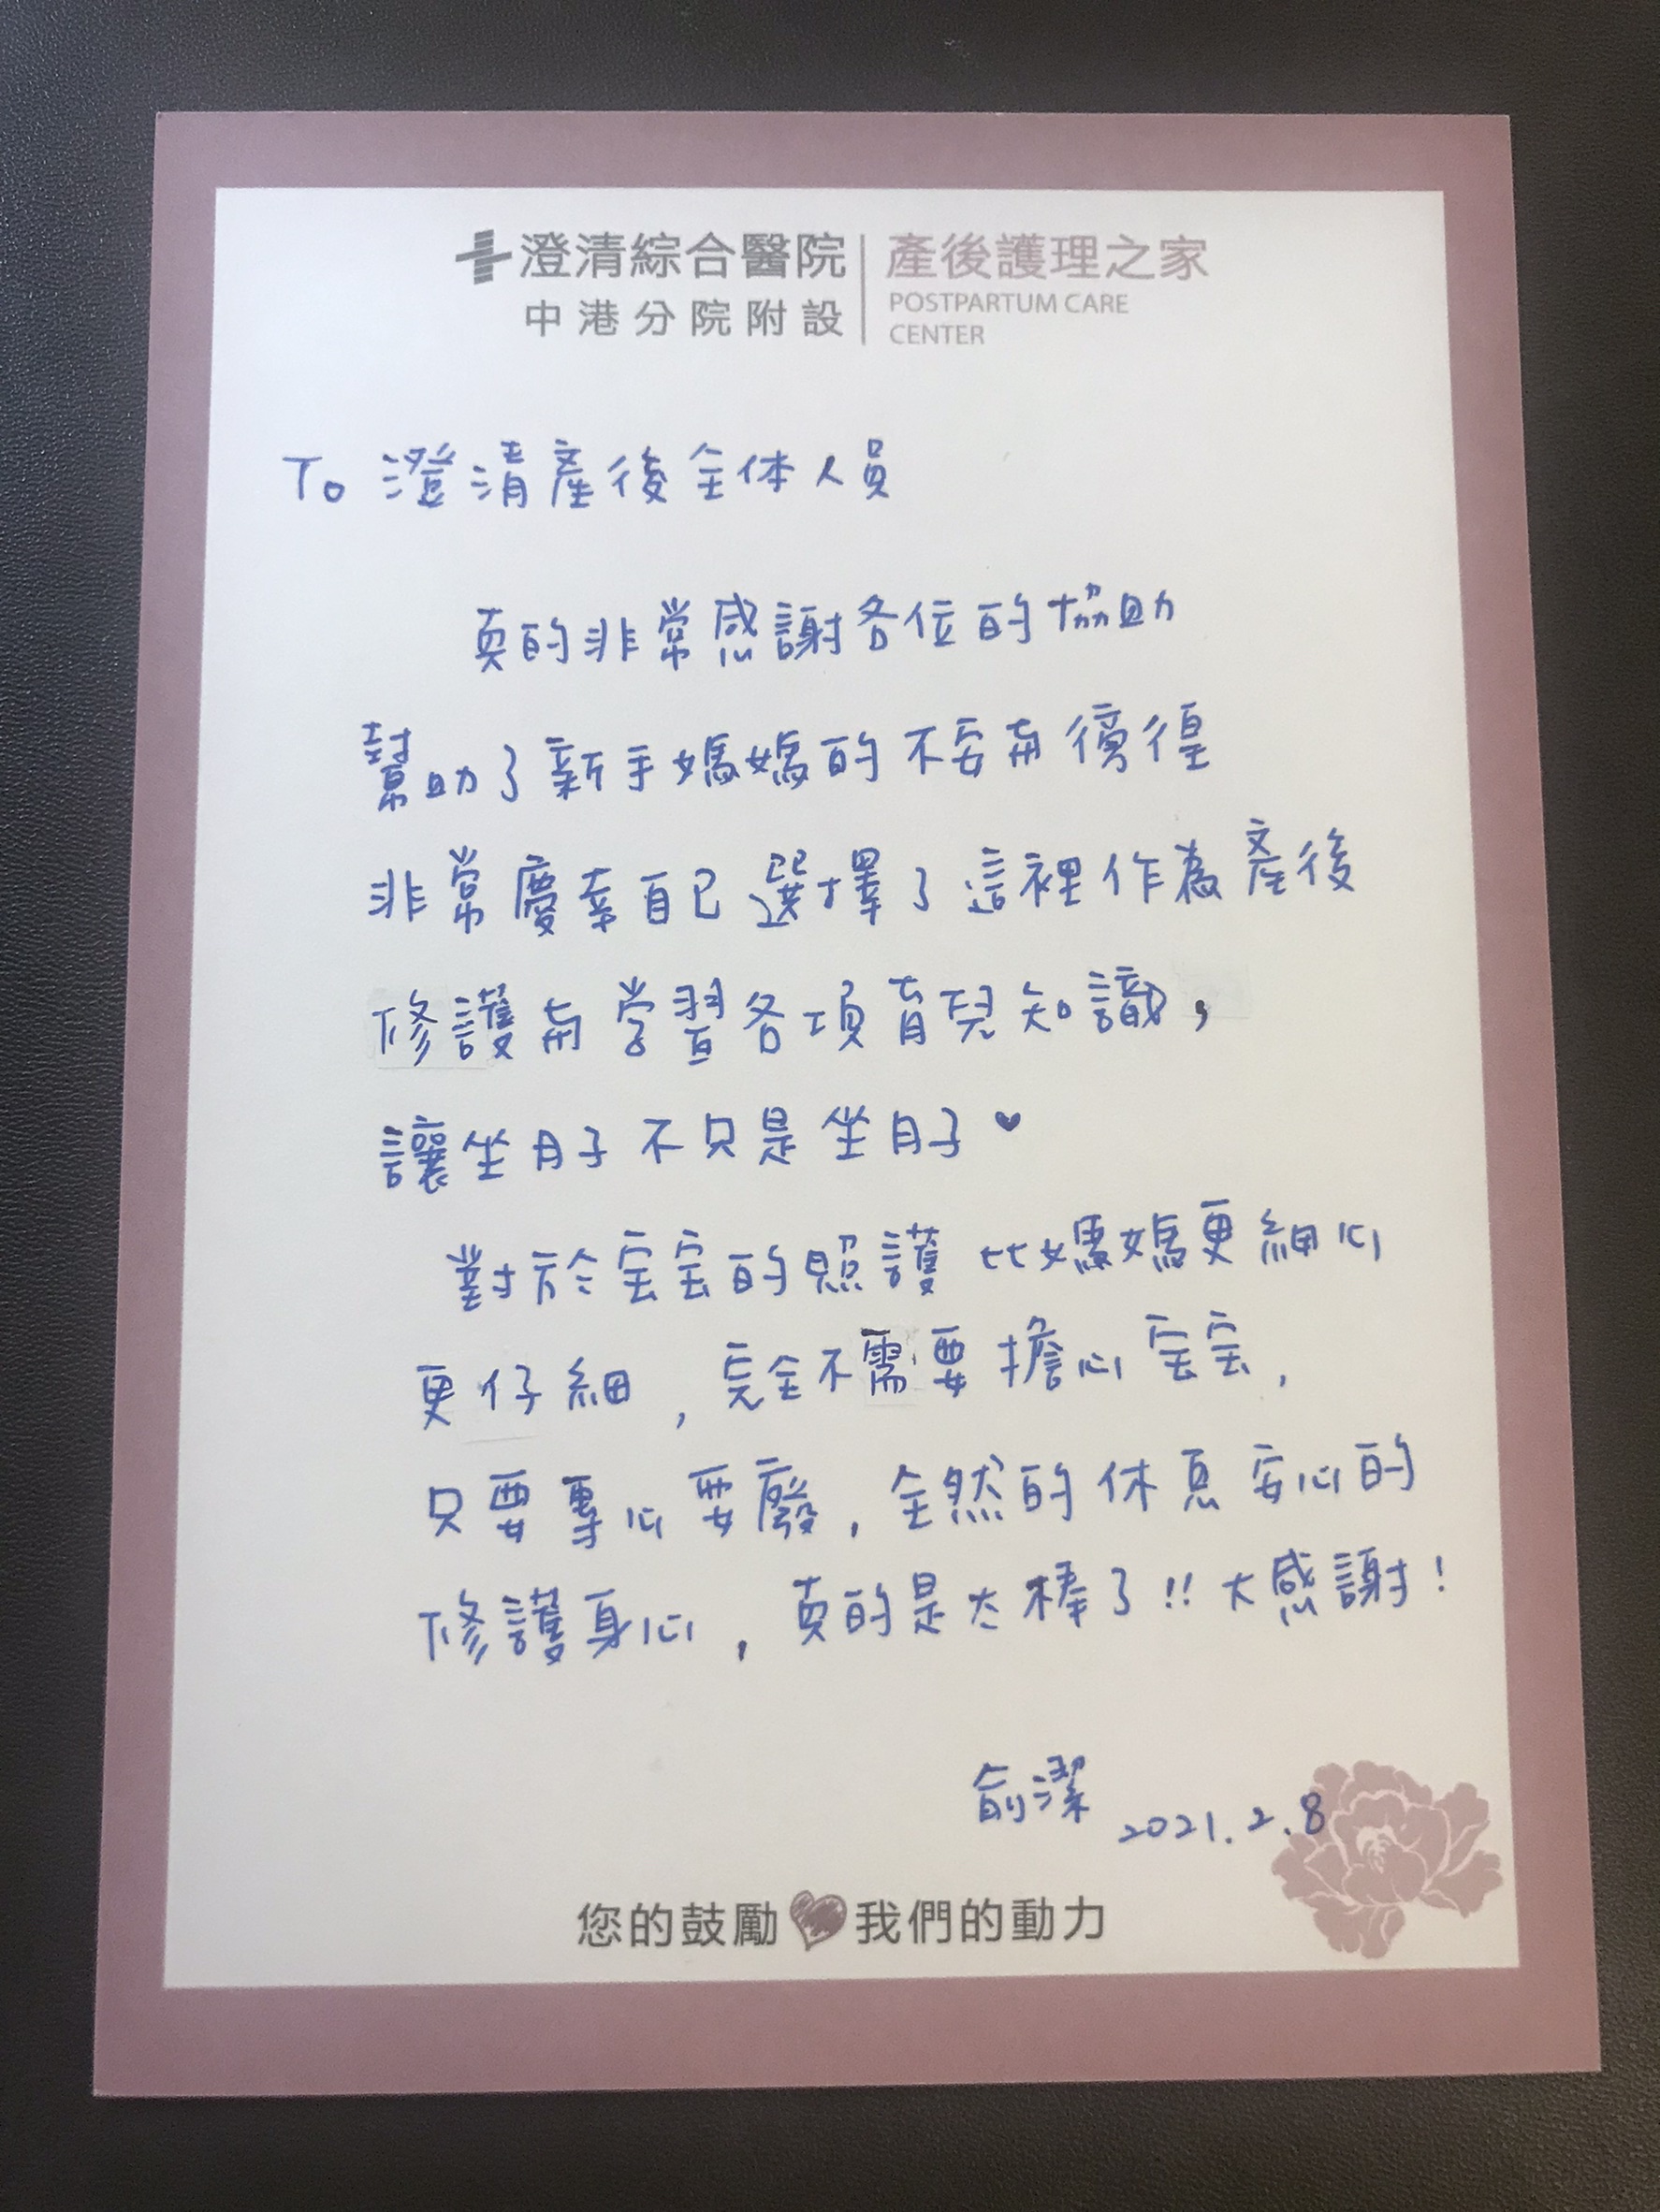 澄清綜合醫院
中港分院附設
產後護理之家
POSTPARTUM CARE
CENTER
To 澄清產後全体人員
真的非常感謝各位的協助
幫助了新手媽媽的不安與徬徨
非常慶幸自己選擇了這裡作為產後
修護與學習各項育兒知識，
讓坐月子不只是坐月子♥
對於宝宝的照護 比媽媽更細心
更仔細，完全不需要擔心宝宝，
只要專心耍廢，全然的休息安心的
修護身心，真的是太棒了!! 大感謝！
俞潔 2021.2.8
您的鼓勵 我們的動力